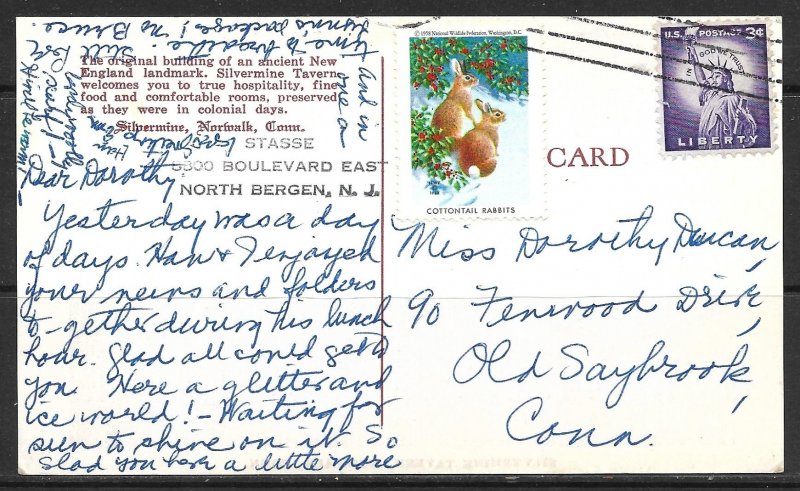 The original building of an ancient New
England landmark. Silvermine Tavern
welcomes you to true hospitality, fine
food and comfortable rooms, preserved
as they were in colonial days.
Silvermine, Norwalk, Conn.
STASSE
8300 BOULEVARD EAST
NORTH BERGEN, N. J.
Dear Dorothy,
Yesterday was a day
of days. Han & I enjoyed
your news and folders
to-gether during his lunch
hour. Glad all could get to
you. Here a glitter and
ice world! - Waiting for
sun to shine on it. So
glad you have a little more
time to
packages! No Bruce.
Still
and in
© 1958 National Wildlife Federation, Washington, D.C.
COTTONTAIL RABBITS
U.S. POSTAGE 3¢
IN GOD WE TRUST
LIBERTY
CARD
Miss Dorothy Duncan,
90 Fenwood Drive,
Old Saybrook,
Conn.